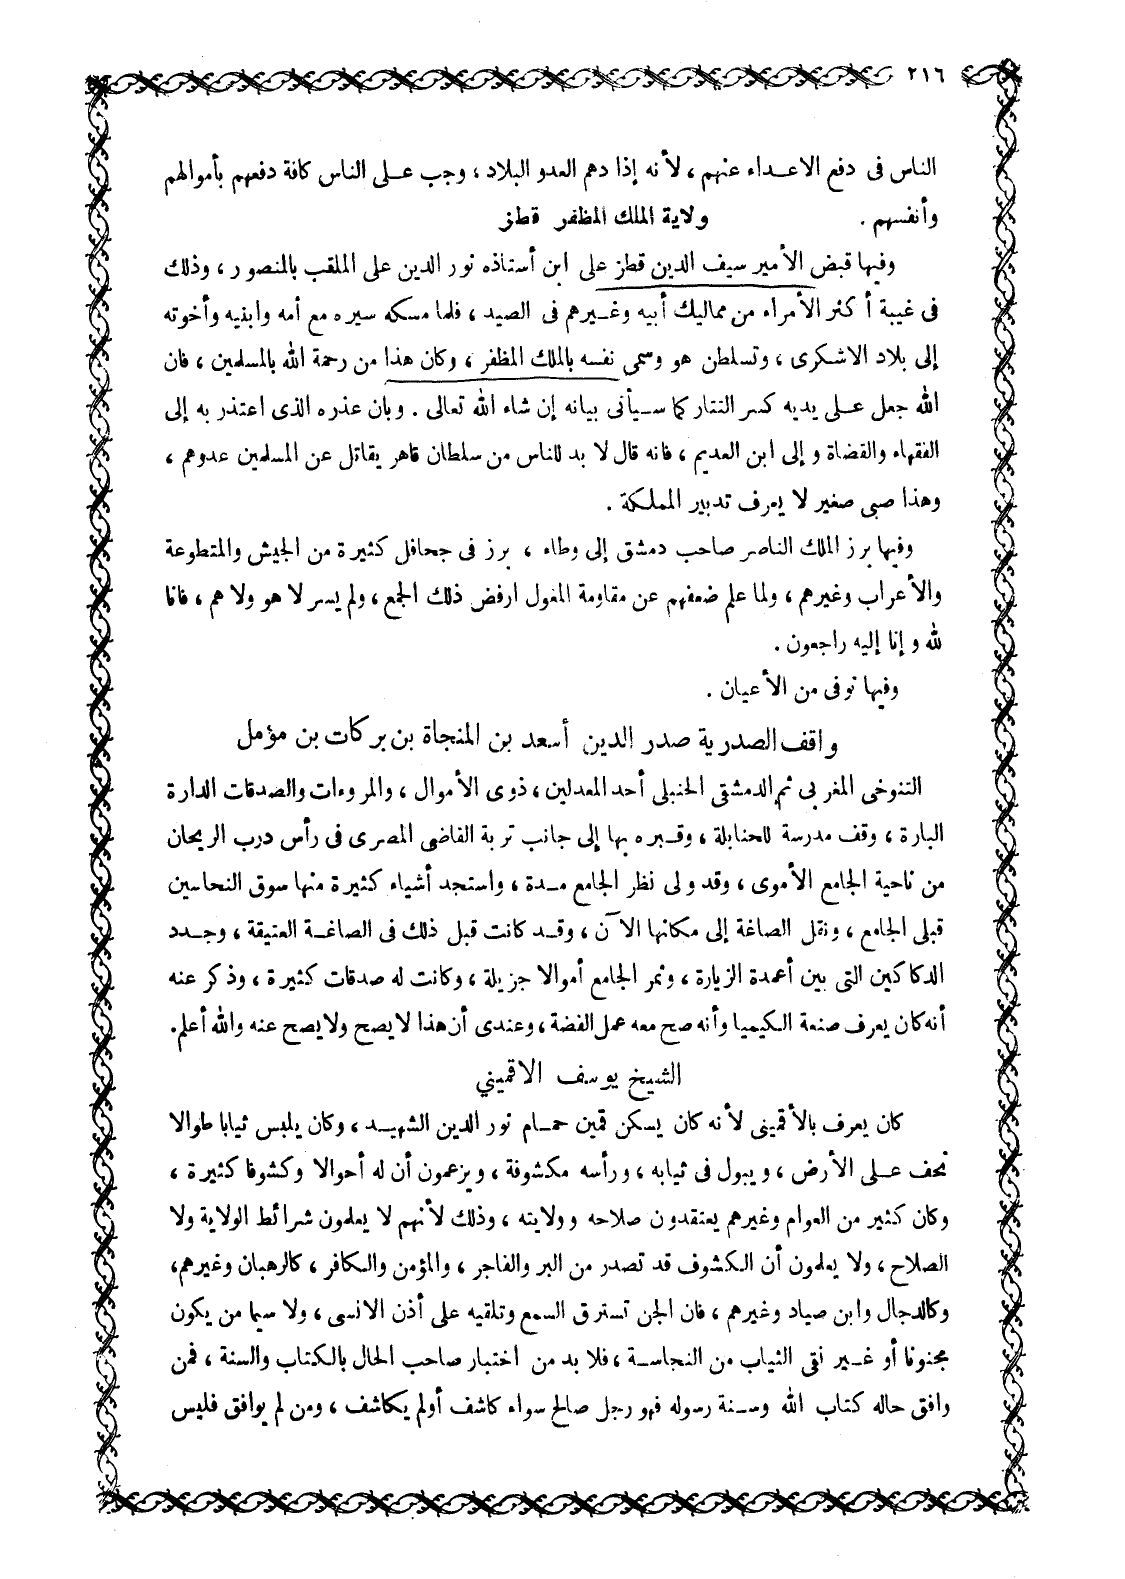 ٢١٦
الناس فى دفع الاعداء عنهم ، لأنه إذا دهم العدو البلاد ، وجب على الناس كافة دفعهم بأموالهم
وأنفسهم . ولاية الملك المظفر قطز
وفيها قبض الأمير سيف الدين قطز على ابن أستاذه نور الدين على الملقب بالمنصور ، وذلك
فى غيبة أكثر الأمراء من مماليك أبيه وغيرهم فى الصيد ، فلما مسكه سيره مع أمه وابنيه وأخوته
إلى بلاد الاشكرى ، وتسلطن هو وسمى نفسه بالملك المظفر ، وكان هذا من رحمة الله بالمسلمين ، فان
الله جعل على يديه كسر التتار كما سيأتى بيانه إن شاء الله تعالى . وبان عذره الذى اعتذر به إلى
الفقهاء والقضاة و إلى ابن العديم ، فانه قال لا بد للناس من سلطان قاهر يقاتل عن المسلمين عدوهم ،
وهذا صبى صغير لا يعرف تدبير المملكة .
وفيها برز الملك الناصر صاحب دمشق إلى وطاء ، برز فى جحافل كثيرة من الجيش والمتطوعة
والأعراب وغيرهم ، ولما علم ضعفهم عن مقاومة المغول ارفض ذلك الجمع ، ولم يسر لا هو ولا هم ، فانا
لله و إنا إليه راجعون .
وفيها توفى من الأعيان .
واقف الصدرية صدر الدين أسعد بن المنجاة بن بركات بن مؤمل
التنوخى المغربى ثم الدمشقى الحنبلى أحد المعدلين ، ذوى الأموال ، والمروءات والصدقات الدارة
البارة ، وقف مدرسة للحنابلة ، وقبره بها إلى جانب تربة القاضى المصرى فى رأس درب الريحان
من ناحية الجامع الأموى ، وقد ولى نظر الجامع مدة ، واستجد أشياء كثيرة منها سوق النحاسين
قبلى الجامع ، ونقل الصاغة إلى مكانها الآن ، وقد كانت قبل ذلك فى الصاغة العتيقة ، وجدد
الدكاكين التى بين أعمدة الزيارة ، وثمر الجامع أموالا جزيلة ، وكانت له صدقات كثيرة ، وذكر عنه
أنه كان يعرف صنعة الكيميا وأنه صح معه عمل الفضة ، وعندى أن هذا لا يصح ولا يصح عنه والله أعلم.
الشيخ يوسف الاقمينى
كان يعرف بالأقمينى لأنه كان يسكن قمين حمام نور الدين الشهيد ، وكان يلبس ثيابا طوالا
تحف على الأرض ، و يبول فى ثيابه ، ورأسه مكشوفة ، ويزعمون أن له أحوالا وكشوفا كثيرة ،
وكان كثير من العوام وغيرهم يعتقدون صلاحه وولايته ، وذلك لأنهم لا يعلمون شرائط الولاية ولا
الصلاح ، ولا يعلمون أن الكشوف قد تصدر من البر والفاجر ، والمؤمن والكافر ، كالرهبان وغيرهم،
وكالدجال وابن صياد وغيرهم ، فان الجن تسترق السمع وتلقيه على أذن الانسى ، ولا سيما من يكون
مجنونا أو غير نقى الثياب من النجاسة ، فلا بد من اختبار صاحب الحال بالكتاب والسنة ، فمن
وافق حاله كتاب الله وسنة رسوله فهو رجل صالح سواء كاشف أولم يكاشف ، ومن لم يوافق فليس